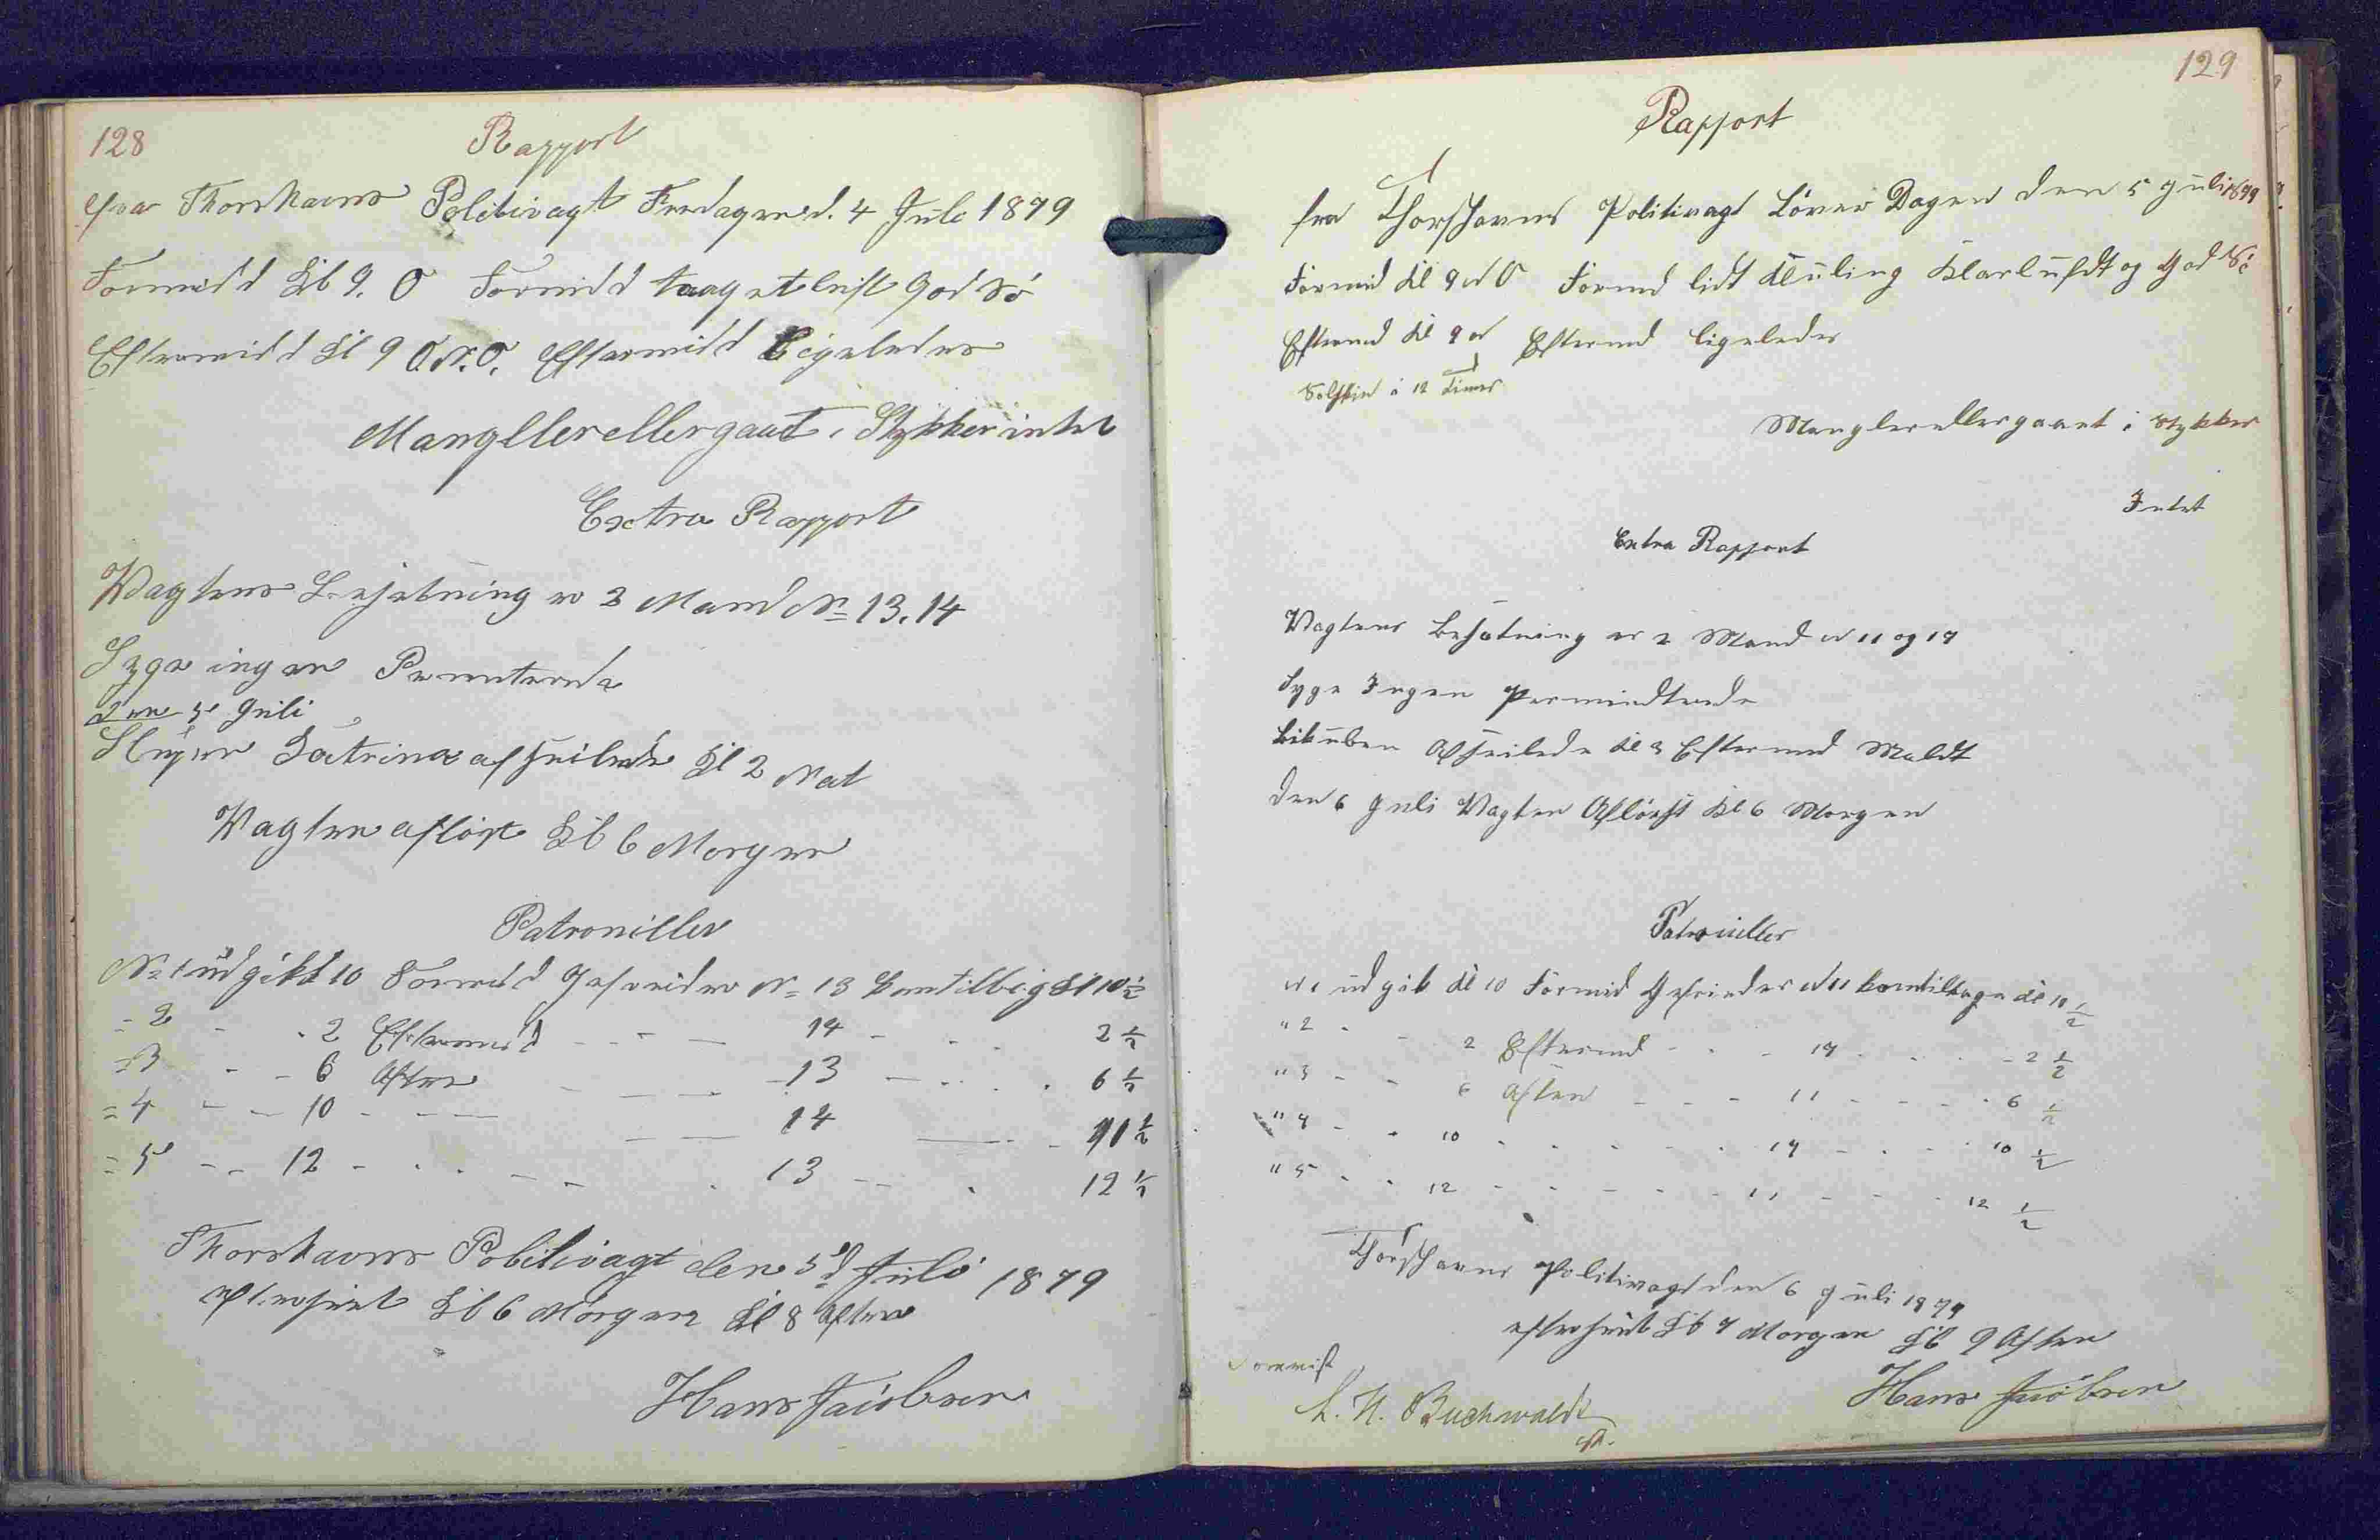 128
Rapport
fra Thorshavns Politivagt Fredagen d. 4 Juli 1879
Formidd Kl 9. O Formidd taaget luft God Sö
Eftermidd Kl 9 O.N.O. Eftermidd Ligeledes
Mangller eller gaaet i Stykker intet
Extra Rapport
Wagtens Besætning er 2 Mand No 13. 14
Syge ingen
den 5 Juli
Katrina afseilede Kl 2 Nat
Wagten aflöst Kl 6 Morgen
Patrouiller
No 1 udgik kl 10 Formidd Gefreider No 13 Komtilbage Kl 10 1/2
= 2 - . 2 Eftermid - - - 14 - . . 2 1/2
= 3 - - 6 Aften - - - 13 - . . . 6 1/2
= 4 - - 10 - - - - - 14 - - 1/2
= 5 - - 12 - . . - - . 13 - - . 12 1/2
Thorshavns Politivagt den 5d Juli 1879
efterseet Kl 6 Morgen Kl 8 Aften
Hans Jacobsen
129
Rapport
fra Thorshavns Politivagt Löver Dagen den 5 Juli 1879
Formid Kl 9 O Formd lidt Kuling Klarlufdt og God Sö
Eftermd Kl 9 Eftermd ligeledes
Solskin i 12 Timer
Mangler eller gaaet i Stykker
Intet
Extra Rapport
Vagtens Besætning er 2 Mand N 11 og 14
Syge Ingen
Afseilede Kl 3 Eftermd
den 6 Juli Vagten Aflöest Kl 6 Morgen
Patrouiller
N 1 udgik Kl 10 Formid Gefrieder N 11 komtilbage Kl 10 1/2
" 2 - - 2 Eftermd - . - 14 . . . - 2 1/2
" 3 - - 6 Aften - - - 11 - - - . 6 1/2
" 4 - - 10 - - - - . 14 - . - 10 1/2
" 5 - . 12 - - - - - 11 - - - 12 1/2
Thorshavns Politivagt den 6 Juli 1879
efterseet Kl 7 Morgen Kl 9 Aften
Hans Jacobsen
Buchwaldt